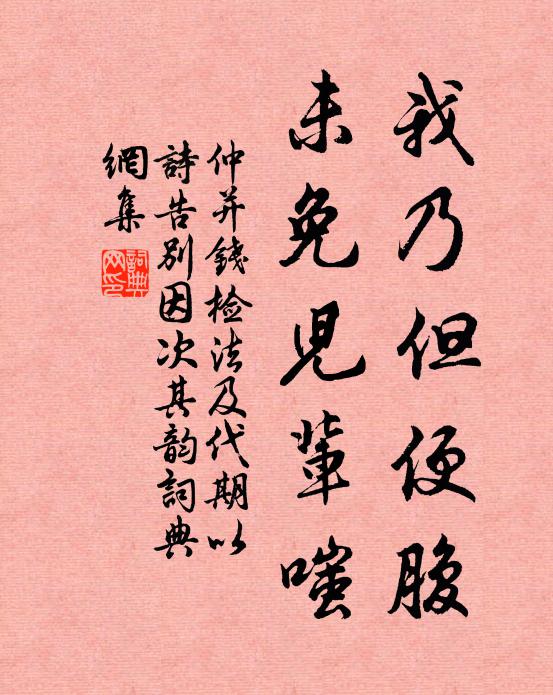 我乃但便腹
未免兒輩嗤
仲并錢檢法及代期以
詩告別因次其韵詞典
網集
詞典
网印